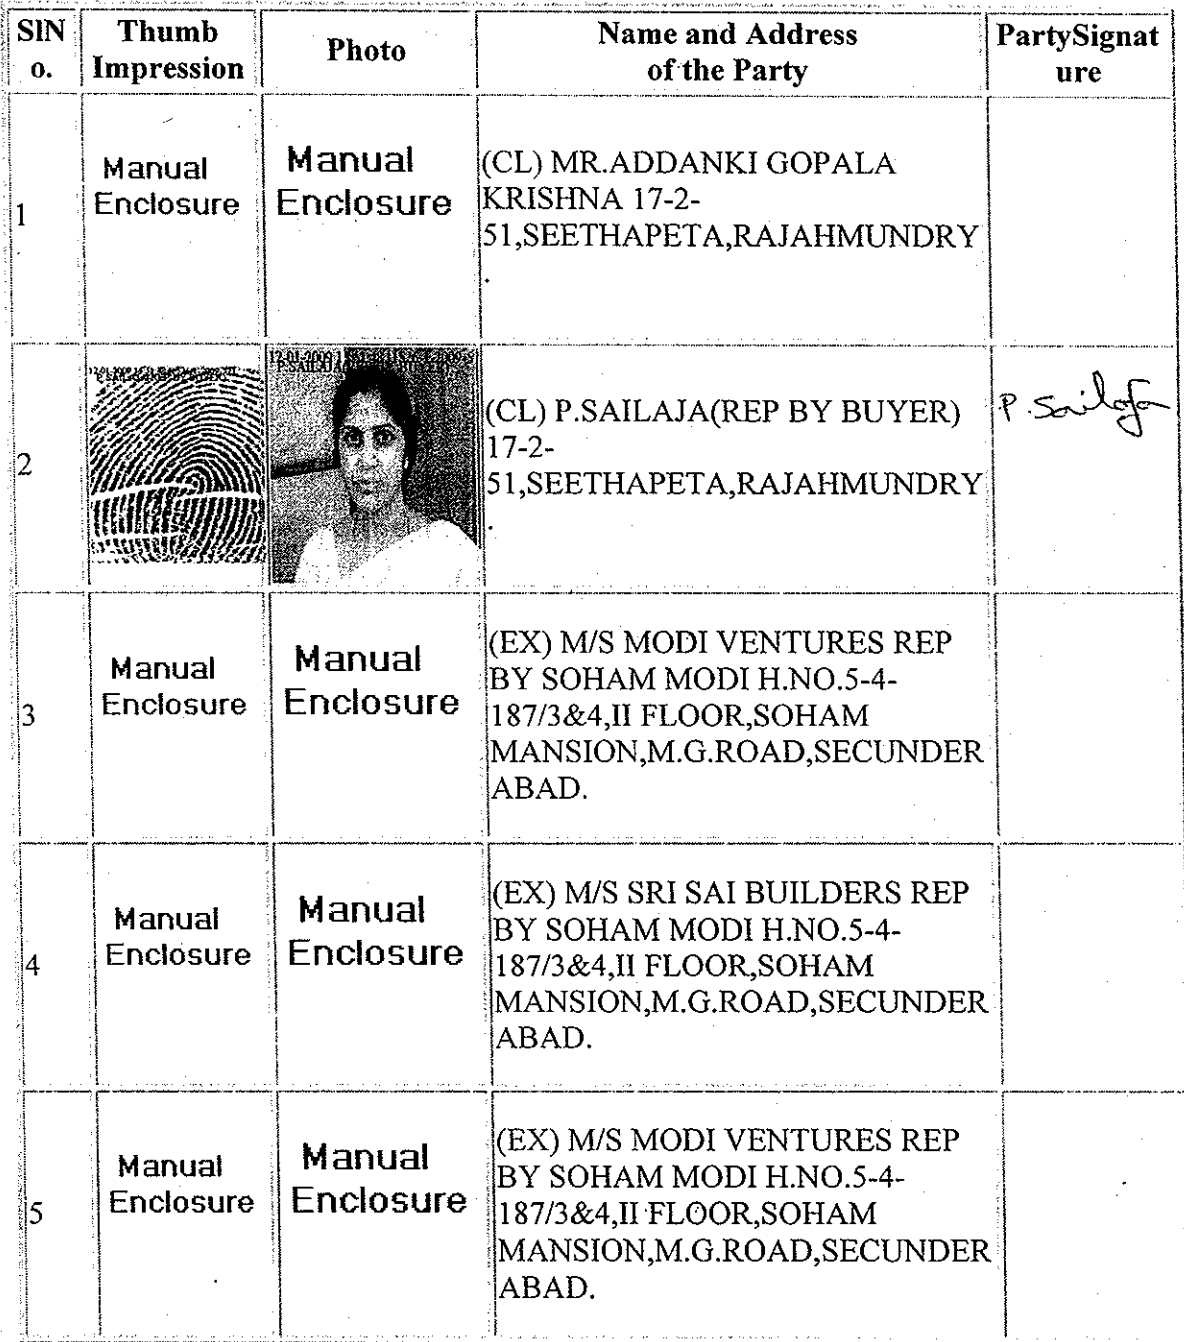 SlN Thumb Photo Name and Address PartySignat
o. Impression of the Party ure
1
Manual
Enclosure
Manual
Enclosure
(CL) MR.ADDANKI GOPALA
KRISHNA 17-2-
51,SEETHAPETA,RAJAHMUNDRY
.
2
(CL) P.SAILAJA(REP BY BUYER)
17-2-
51,SEETHAPETA,RAJAHMUNDRY
.
P. Sailaja
3
Manual
Enclosure
Manual
Enclosure
(EX) M/S MODI VENTURES REP
BY SOHAM MODI H.NO.5-4-
187/3&4,II FLOOR,SOHAM
MANSION,M.G.ROAD,SECUNDER
ABAD.
4
Manual
Enclosure
Manual
Enclosure
(EX) M/S SRI SAI BUILDERS REP
BY SOHAM MODI H.NO.5-4-
187/3&4,II FLOOR,SOHAM
MANSION,M.G.ROAD,SECUNDER
ABAD.
5
Manual
Enclosure
Manual
Enclosure
(EX) M/S MODI VENTURES REP
BY SOHAM MODI H.NO.5-4-
187/3&4,II FLOOR,SOHAM
MANSION,M.G.ROAD,SECUNDER
ABAD.